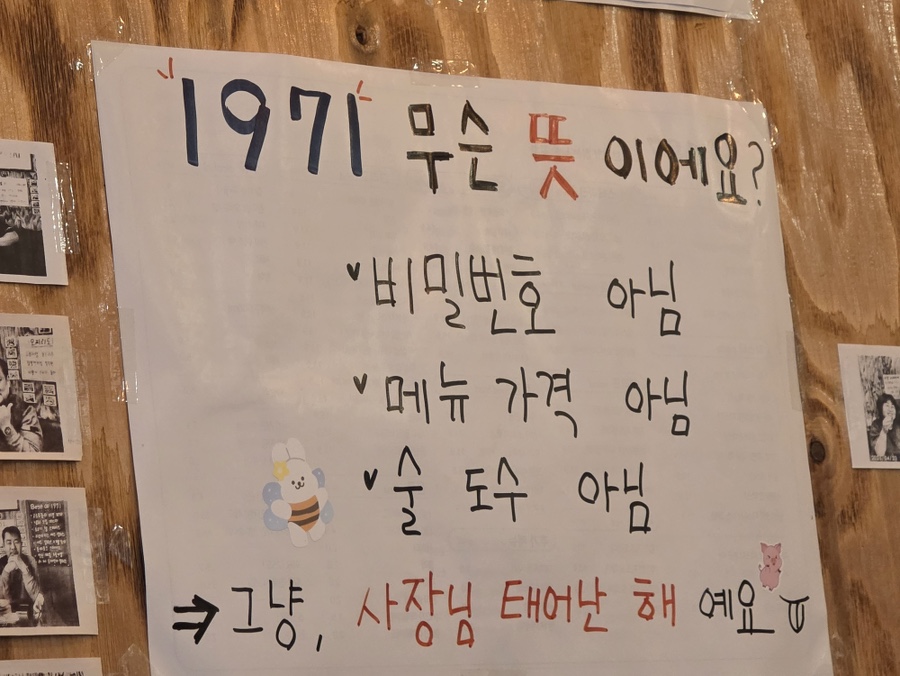 1971 무슨 뜻 이에요?
비밀번호 아님
메뉴 가격 아님
술 도수 아님
⇒ 그냥, 사장님 태어난 해 예요